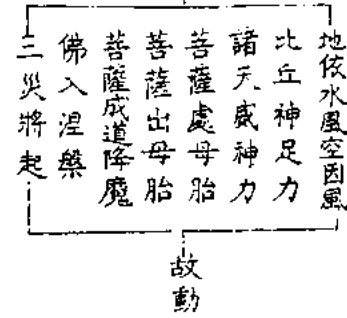 地依水風空因風
比丘神足力
諸天威神力
菩薩處母胎
菩薩出母胎
菩薩成道降魔
佛入涅槃
二災將起
故動